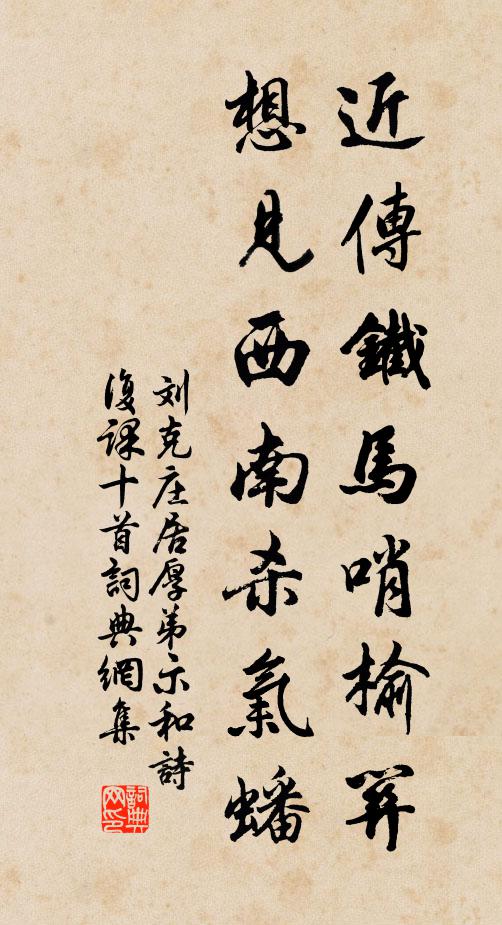 近傳鐵馬哨榆關
想見西南杀氣蟠
刘克庄居厚弟示和詩
復課十首詞典網集
詞典网印